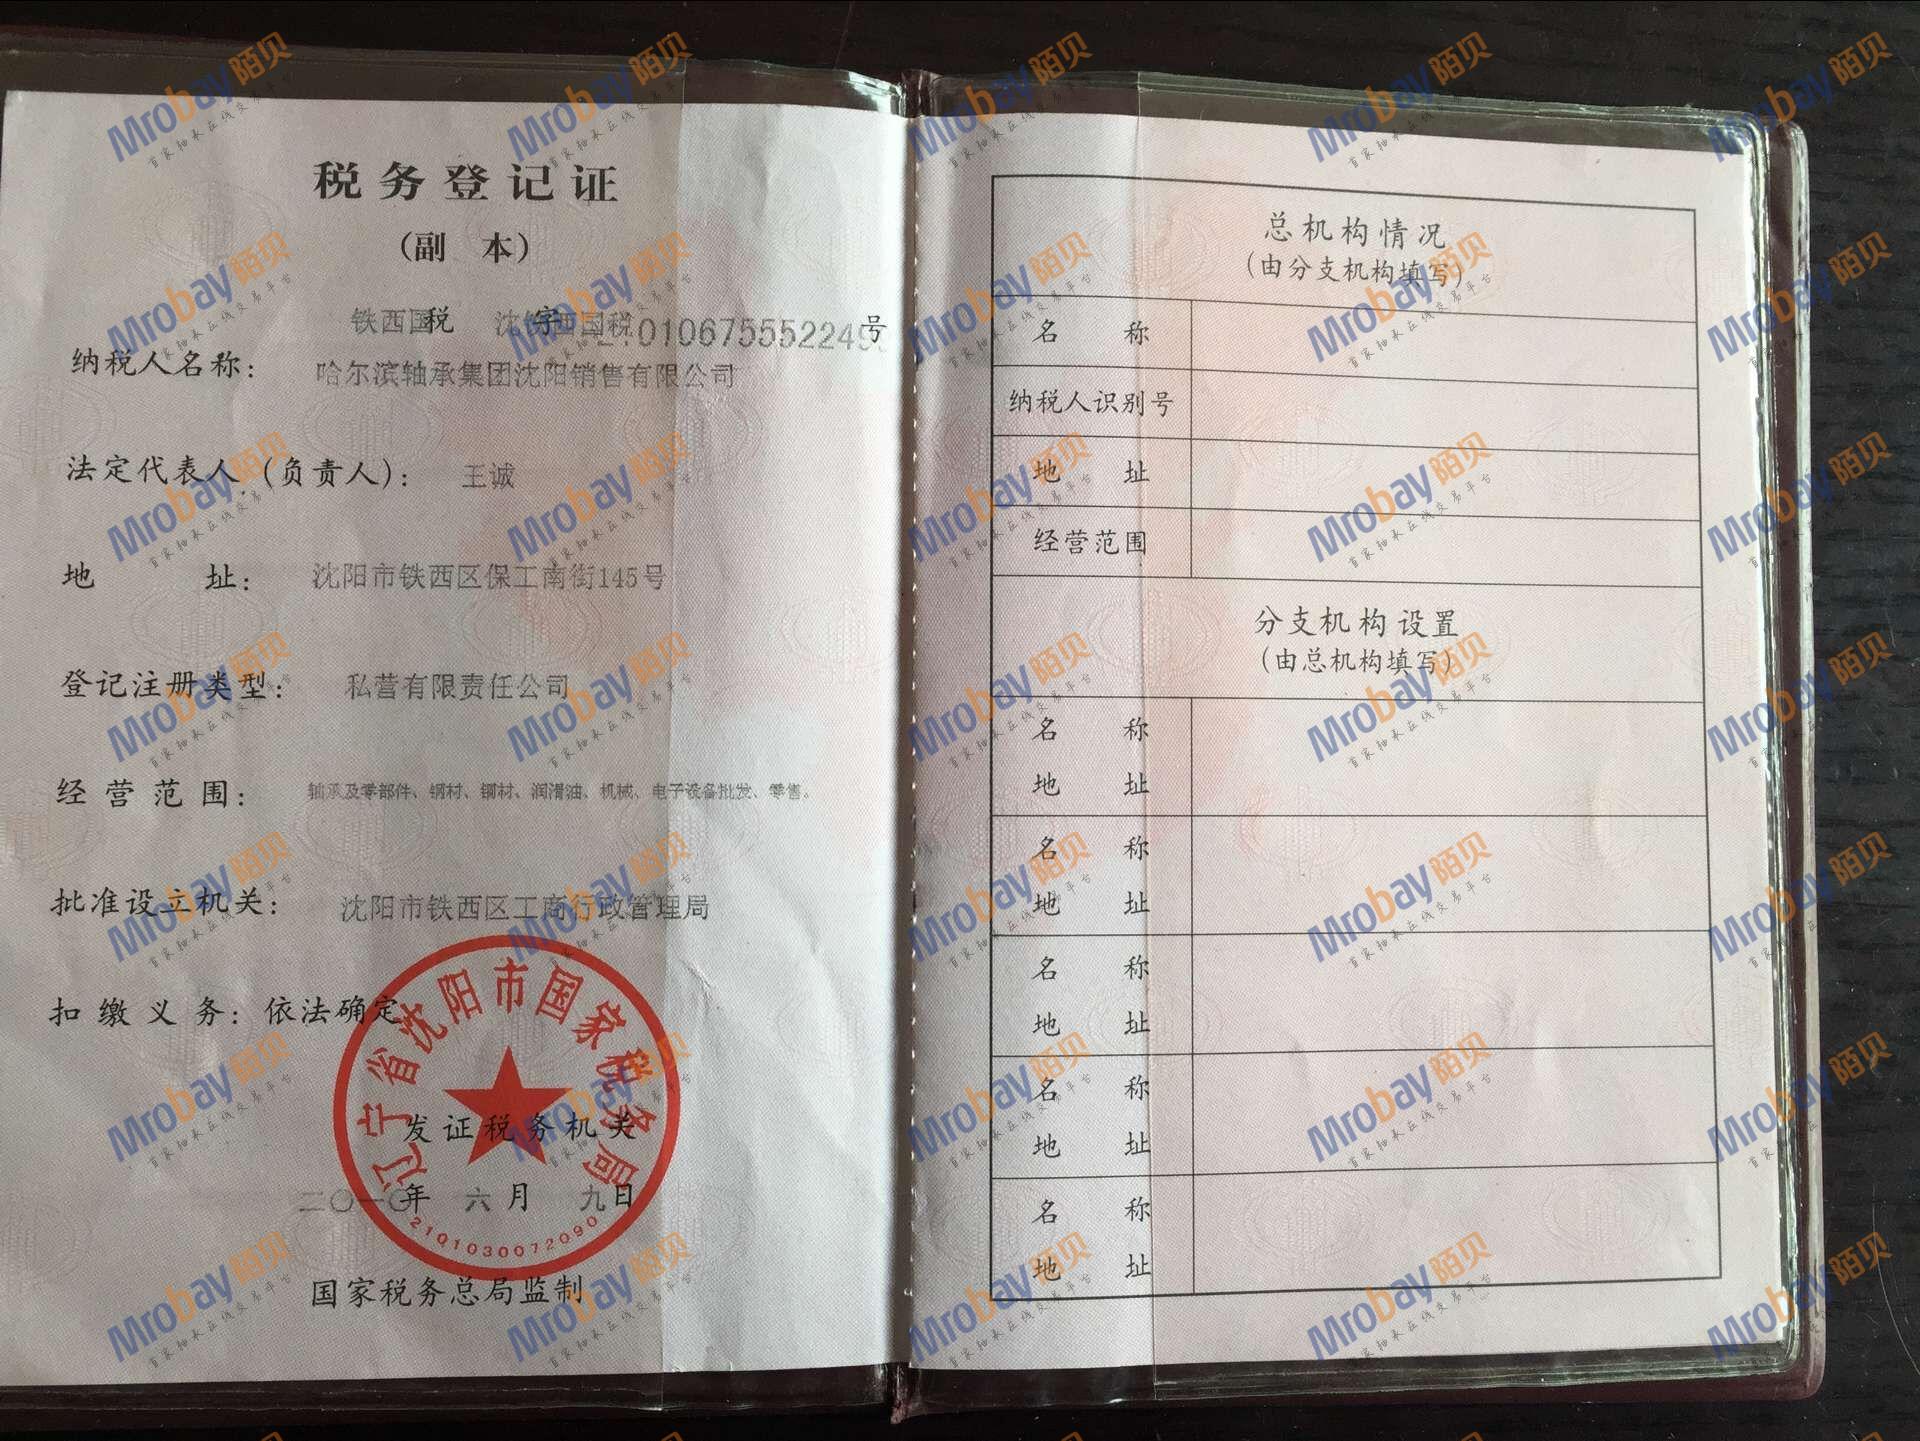 税务登记证
(副 本)
铁西国税 字 沈铁西国税 210106755522495 号
纳税人名称: 哈尔滨轴承集团沈阳销售有限公司
法定代表人(负责人): 王诚
地 址: 沈阳市铁西区保工南街145号
登记注册类型: 私营有限责任公司
经营范围: 轴承及零部件、钢材、铜材、润滑油、机械、电子设备批发、零售。
批准设立机关: 沈阳市铁西区工商行政管理局
扣缴义务: 依法确定
辽宁省沈阳市国家税务局
发证税务机关
二〇一〇年 六月 九日
2101030072090
国家税务总局监制
总机构情况
(由分支机构填写)
名 称
纳税人识别号
地 址
经营范围
分支机构设置
(由总机构填写)
名 称
地 址
名 称
地 址
名 称
地 址
名 称
地 址
名 称
地 址
Mrobay陌贝
首家轴承在线交易平台